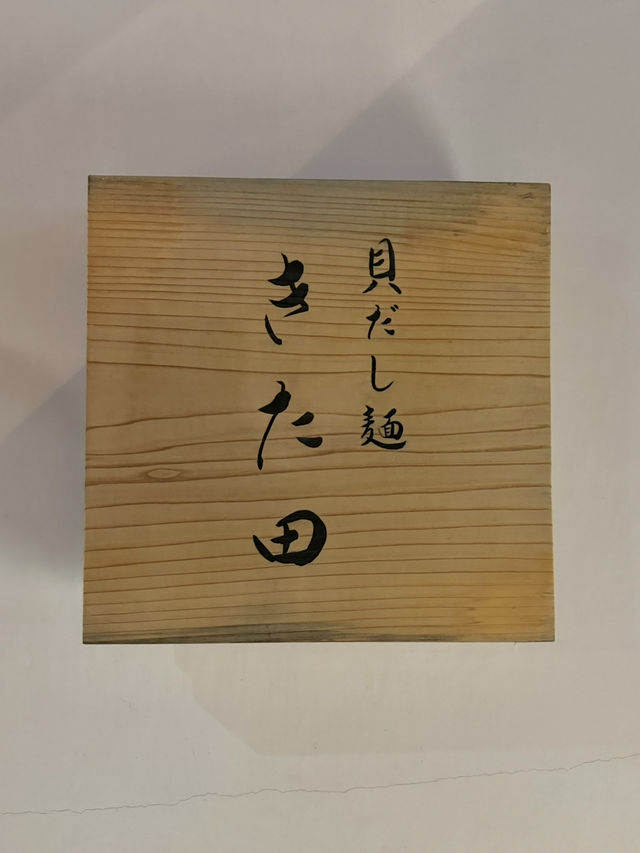 貝だし麺
きた田